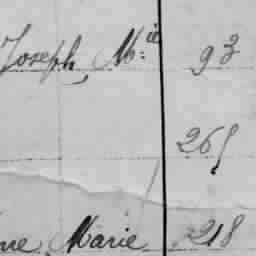 Joseph M.ie 93
265
ne Marie 218